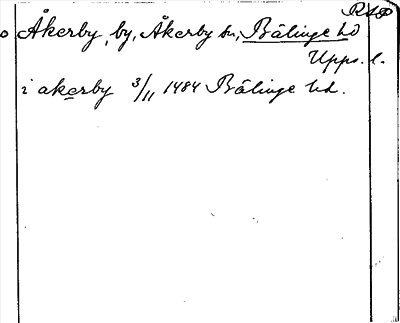 RAP
Åkerby, by, Åkerby sn, Bälinge hd
Upps. l.
i akerby 3/11 1484 Bälinge hd.